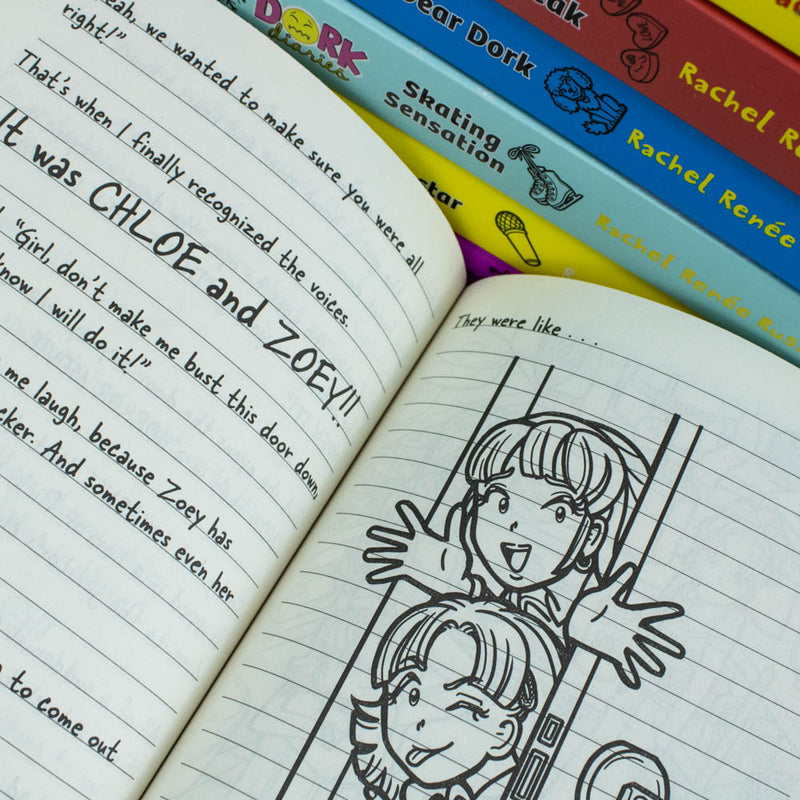 Yeah, we wanted to make sure you were all
right!"
That's when I finally recognized the voices.
It was CHLOE and ZOEY!!
"Girl, don't make me bust this door down,
know I will do it!"
me laugh, because Zoey has
And sometimes even her
to come out
They were like . . .
DORK
diaries
Skating
Sensation
Rachel Renée Russ
Dear Dork
Rachel Renée
Rachel Re